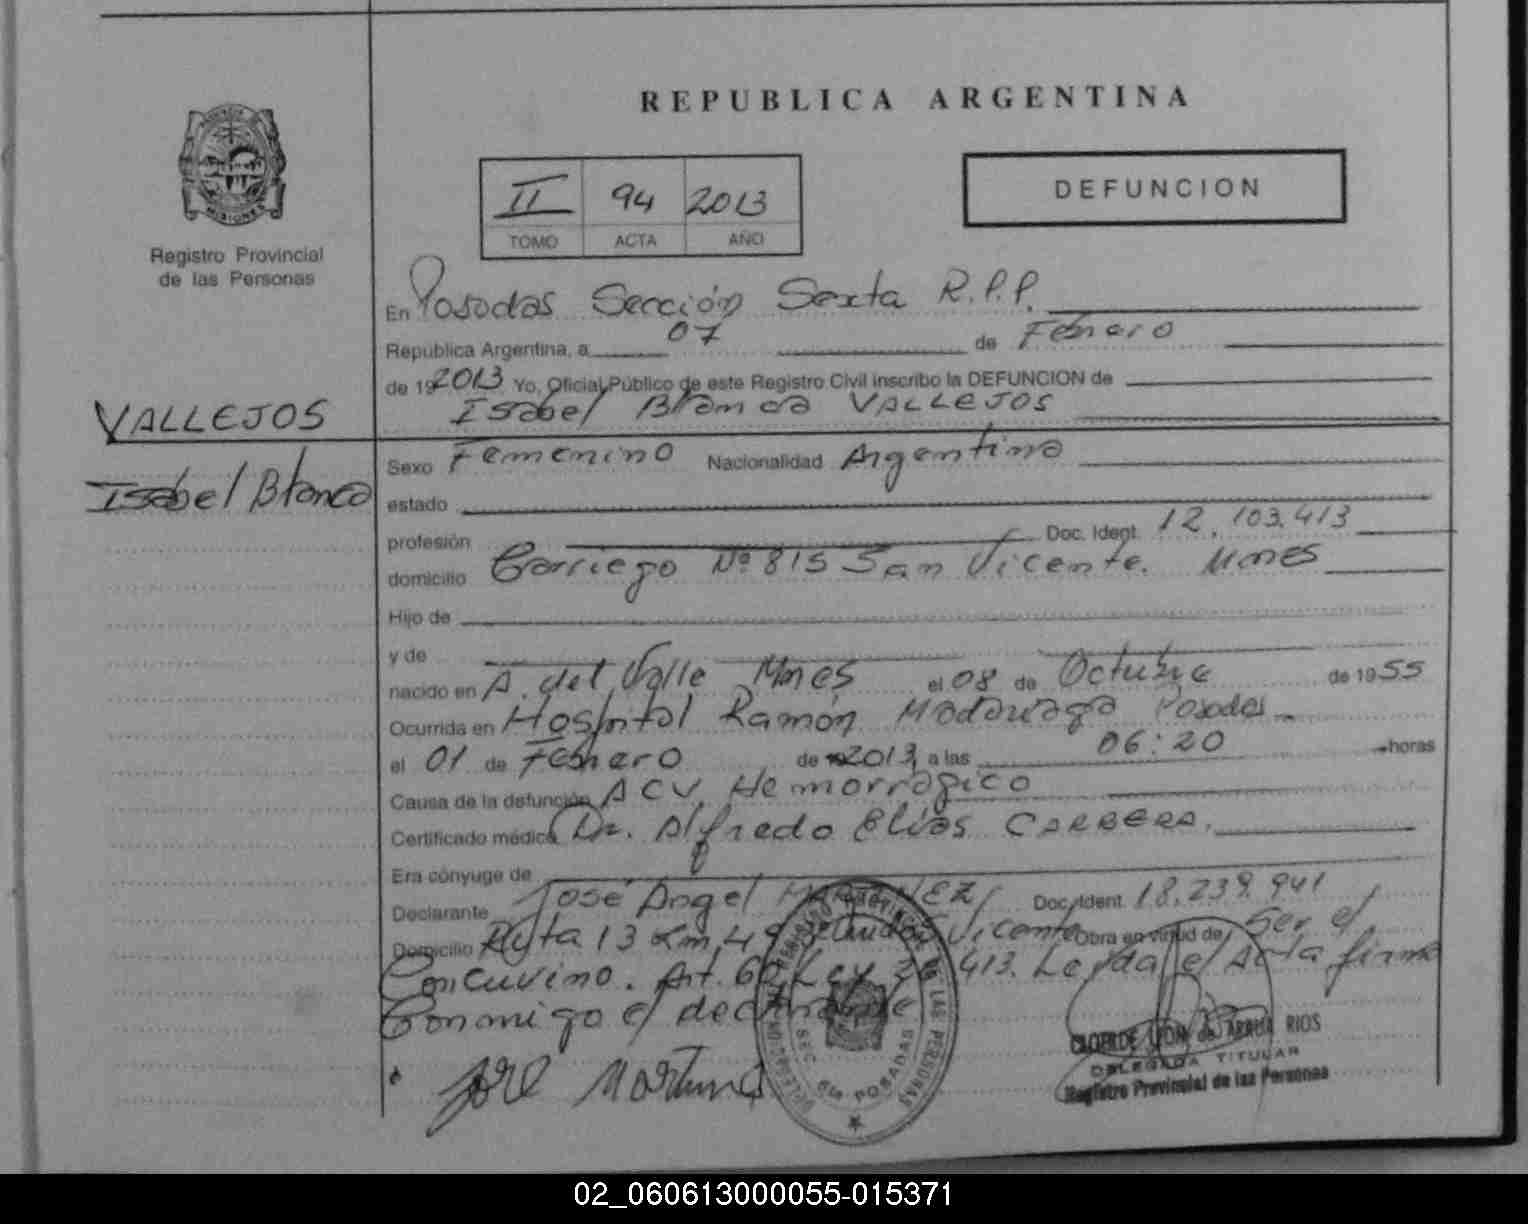 REPUBLICA ARGENTINA
MISIONES
Registro Provincial
de las Personas
II 94 2013
TOMO ACTA AÑO
DEFUNCION
En Posadas Sección Sexta R.P.P.
República Argentina, a 07 de Febrero
de 19 2013 Yo, Oficial Público de este Registro Civil inscribo la DEFUNCION de
Isabel Blanca VALLEJOS
VALLEJOS
Isabel Blanca
Sexo Femenino Nacionalidad Argentina
estado
profesión Doc. Ident. 12.103.413
domicilio Carriego Nº 815 San Vicente. Mnes
Hijo de
y de
nacido en A. del Valle Mnes el 08 de Octubre de 1955
Ocurrida en Hospital Ramón Madariaga Posadas
el 01 de Febrero de 2013, a las 06:20 horas
Causa de la defunción ACV Hemorrágico
Certificado médico Dr. Alfredo Elías CABRERA.
Era cónyuge de
Declarante José Angel MARTINEZ Doc. Ident. 18.239.941
Domicilio Ruta 13 Km. Vicente Obra en virtud de Ser el
Concuvino. Art. 60 Ley 413. Leída el Acta firma
Conmigo el declarante
José Martinez
REGISTRO PROVINCIAL DE LAS PERSONAS
SEC. 6ta POSADAS
de RIOS
DELEGADA TITULAR
Registro Provincial de las Personas
02_060613000055-015371